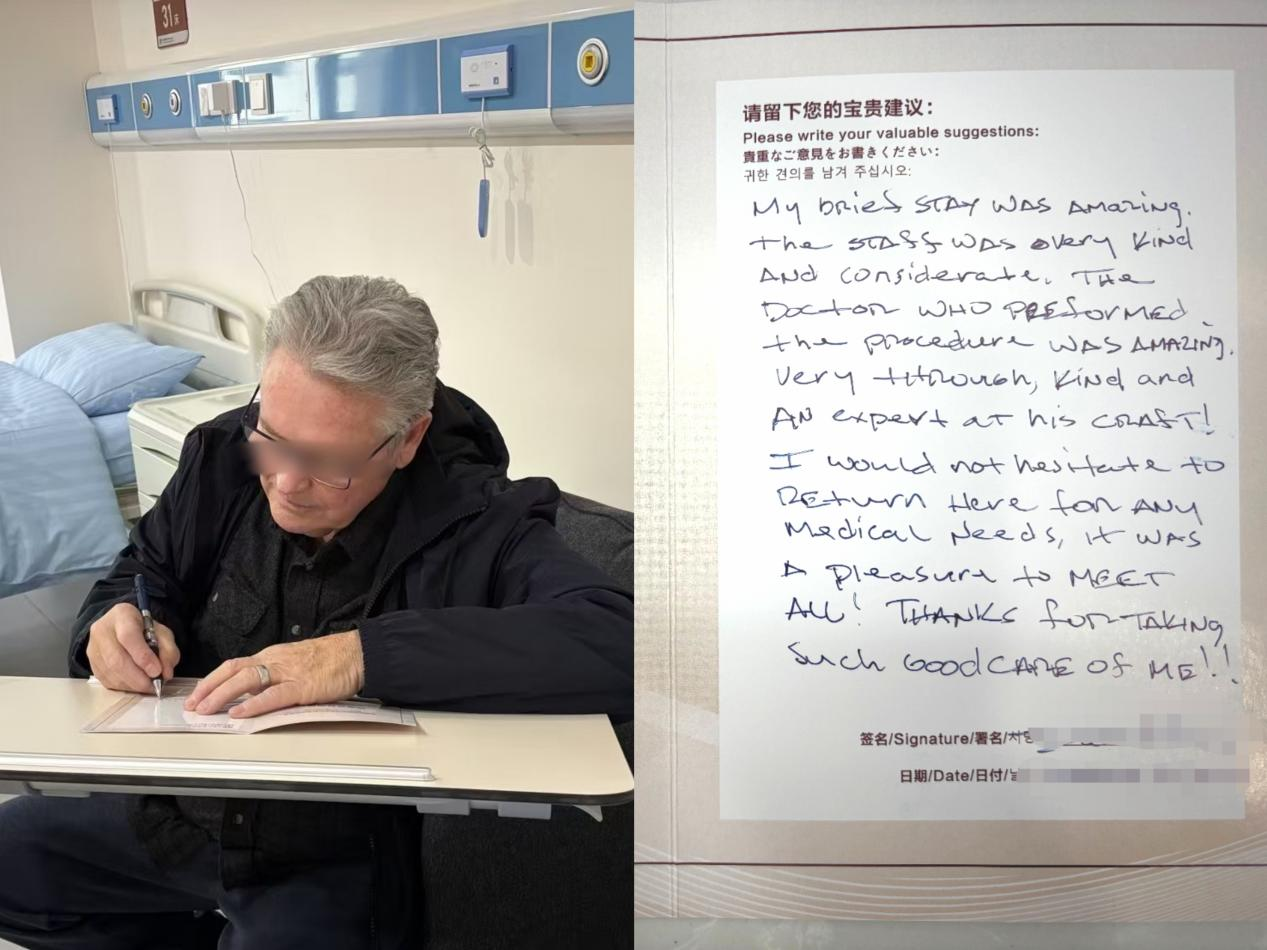 31床
请留下您的宝贵建议：
Please write your valuable suggestions:
貴重なご意見をお書きください：
귀한 견의를 남겨 주십시오:
My brief STAY WAS AMAZING.
the STAFF WAS very KIND
AND considerate. THe
DOCTOR WHO PREFORMED
the procedure WAS AMAZING.
Very thorough, KIND and
AN expert at his CRAFT!
I would not hesitate to
RETURN Here for ANY
Medical Needs, IT WAS
A pleasure to MEET
ALL! THANKS for TAKING
Such GOOD CARE OF ME!!
签名/Signature/署名/서명
日期/Date/日付/